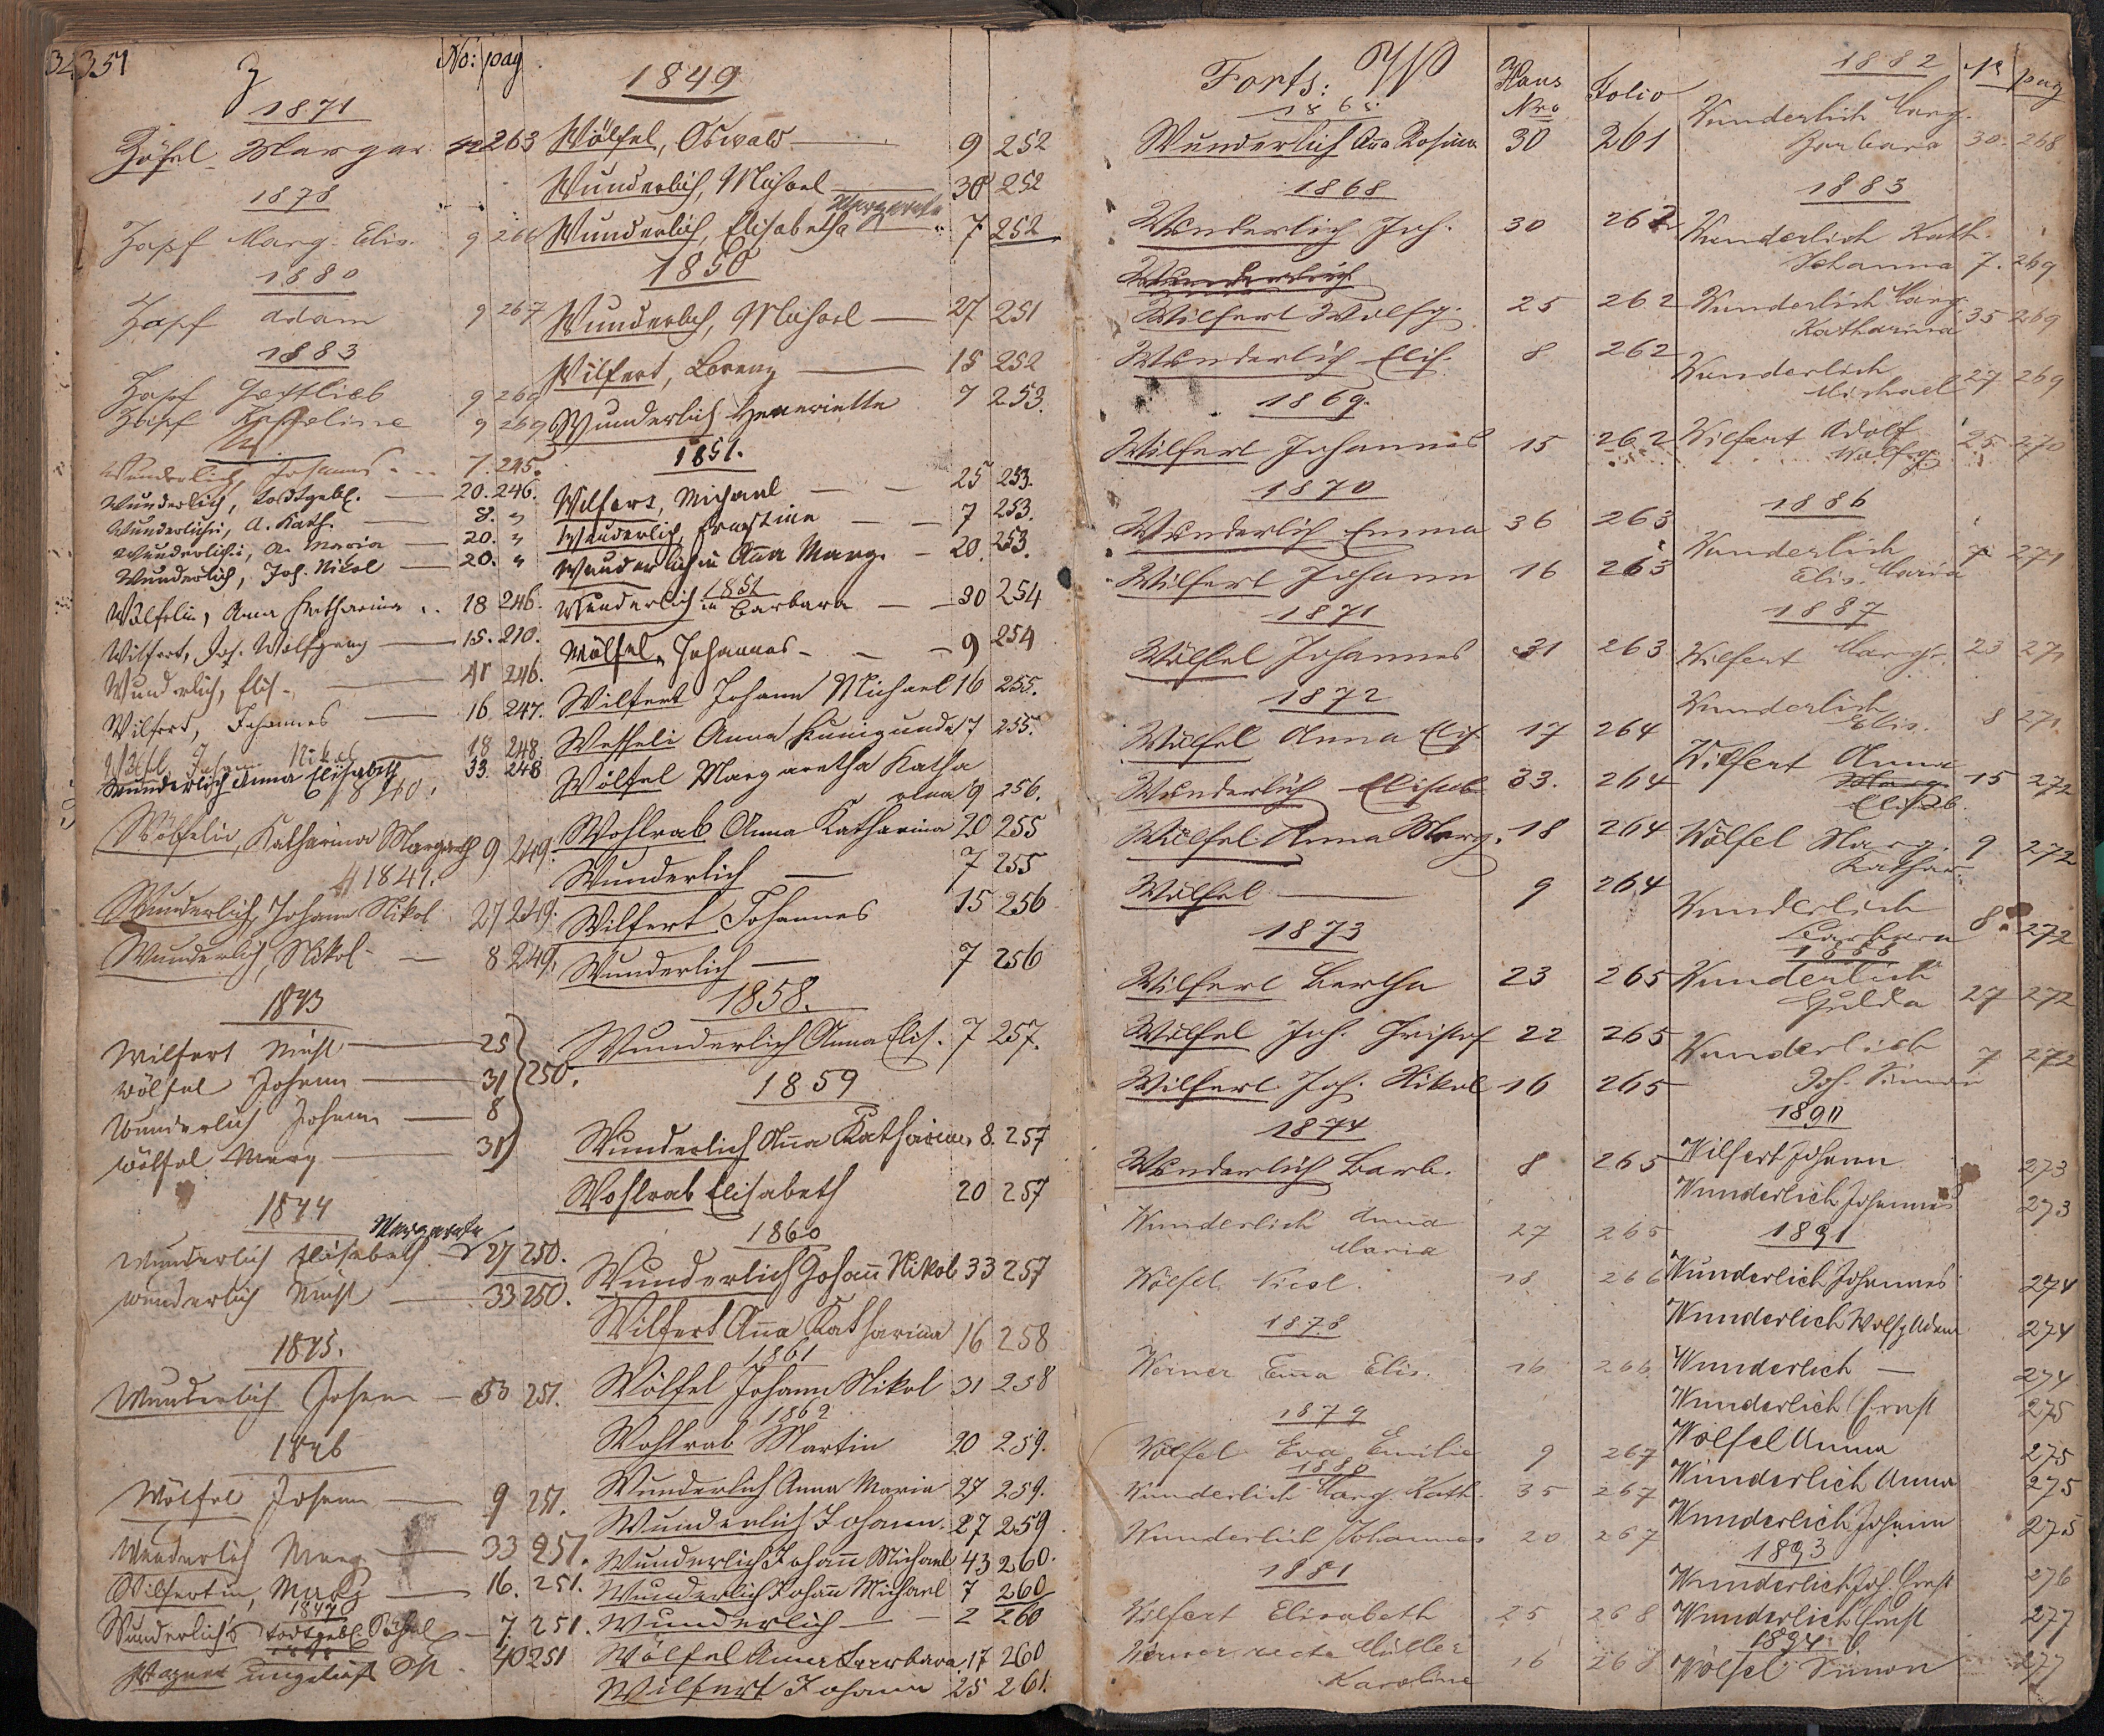 34351
Z No: pag
1871
Zöfel Margar. 42 263
1878
Zapf Marg. Elis. 9 266
1880
Zapf Adam 9 267
1883
Zapf Gottlieb 9 269
Zapf 9 269
W
Wunderlich, Johannes 7. 245.
Wunderlich, todtgeb. 20. 246.
Wunderlichin, A. Kath. 8. "
Wunderlichin, A. Maria 20. "
Wunderlich, Joh. Nikol 20. "
Wölfelin, Anna Katharina 18 246.
Wilfert, Joh. Wolfgang 15. 210.
Wunderlich, Elis. 41 246.
Wilfert, Johannes 16. 247.
Wölfl, Johann Nikol 18 248
Wunderlich Anna Elisabeth 33. 248
1840.
Wölfelin, Katharina Margareth 9 249.
1841.
Wunderlich, Johann Nikol 27 249.
Wunderlich, Nikol 8 249.
1843
Wilfert Michl 25
Wölfel Johann 31 250.
Wunderlich Johann 8
Wölfel Marg 31
1844
Margareta
Wunderlich Elisabeth 27 250.
Wunderlich Michl 33 250.
1845.
Wunderlich Johann 33 251.
1846
Wölfel Johann 9 251.
Wunderlich Marg 33 251.
Wilfertin, Marg 16. 251.
1847
Wunderlich's todtgeb. 7. 251.
1848
Wagner ungetauft 40 251
1849
Wölfel, Oswald 9 252
Wunderlich, Michael 30 252
Margareta
Wunderlich, Elisabetha 7 252
1850
Wunderlich, Michael 27 251
Wilfert, Lorenz 15 252
Wunderlich Henriette 7 253.
1851.
Wilfert, Michael 25 253.
Wunderlich, Ernestine 7 253.
Wunderlichin Anna Marg. 20. 253.
1851
Wunderlichin Barbara 30 254
Wölfel, Johannes 9 254
Wilfert Johann Michael 16 255.
Anna Kunigunda 7 255.
Wölfel Margaretha Katha
rina 9 256.
Wohlrab Anna Katharina 20 255
Wunderlich 7 255
Wilfert Johannes 15 256
Wunderlich 7 256
1858.
Wunderlich Anna Elis. 7 257.
1859
Wunderlich Anna Katharina 8. 257
Wohlrab Elisabeth 20 257
1860
Wunderlich Johann Nikol 33 257
Wilfert Anna Katharina 16 258
1861
Wölfel Johann Nikol 31 258
1862
Wohlrab Martin 20 259.
Wunderlich Anna Maria 27 259.
Wunderlich Johann 27 259
Wunderlich Johann Michael 43 260.
Wunderlich Johann Michael 7 260
Wunderlich 2 260
Wölfel Anna Barbara 17 260
Wilfert Johann 25 261.
Forts: W Haus Nro Folio
Wunderlich Eva Rosina 30 261
1868
Wunderlich Joh. 30 262
Wunderlich
Wilfert Wolfg. 25 262
Wunderlich Elis. 8 262
1869.
Wilfert Johannes 15 262
1870
Wunderlich Emma 36 263
Wilfert Johann 16 263
1871
Wölfel Johannes 31 263
1872
Wölfel Anna Elis 17 264
Wunderlich Elisab. 33. 264
Wölfel Anna Marg. 18 264
Wölfel 9 264
1873
Wilfert Bertha 23 265
Wölfel Joh. Christof 22 265
Wilfert Joh. Nikol 16 265
1874
Wunderlich Barb. 8 265
Wunderlich Anna
Maria 27 265
Wölfel Nicol. 18 266
1878
Werner Emma Elis. 16 266
1879
Wölfel Eva Emilie 9 267
1880
Wunderlich Marg. Kath. 35 267
Wunderlich Johannes 20 267
1881
Wilfert Elisabeth 25 268
Werner recte Müller
Karoline 16 268
1882 No pag
Wunderlich Marg.
Barbara 30. 268
1883
Wunderlich Kath.
Johanna 7. 269
Wunderlich Marg.
Katharina 35 269
Wunderlich
Michael 27 269
Wilfert Adolf
Wolfg. 25 270
1886
Wunderlich
Elis. Maria 7 271
1887
Wilfert Margr. 23 271
Wunderlich
Elis. 8 271
Wilfert Anna
Marg.
Elisab. 15 272
Wölfel Marg.
Kathar. 9 272
Wunderlich
Barbara 8. 272
1888
Wunderlich
Hulda 27 272
Wunderlich
Joh. Simon 7 272
1890
Wilfert Johann 273
Wunderlich Johannes 273
1891
Wunderlich Johannes 274
Wunderlich Wolfg Adam 274
Wunderlich — 274
Wunderlich Ernst 275
Wölfel Anna 275
Wunderlich Anna 275
Wunderlich Johann 275
1893
Wunderlich Joh. Ernst 276
Wunderlich Ernst 277
1894
Wölfel Simon 277